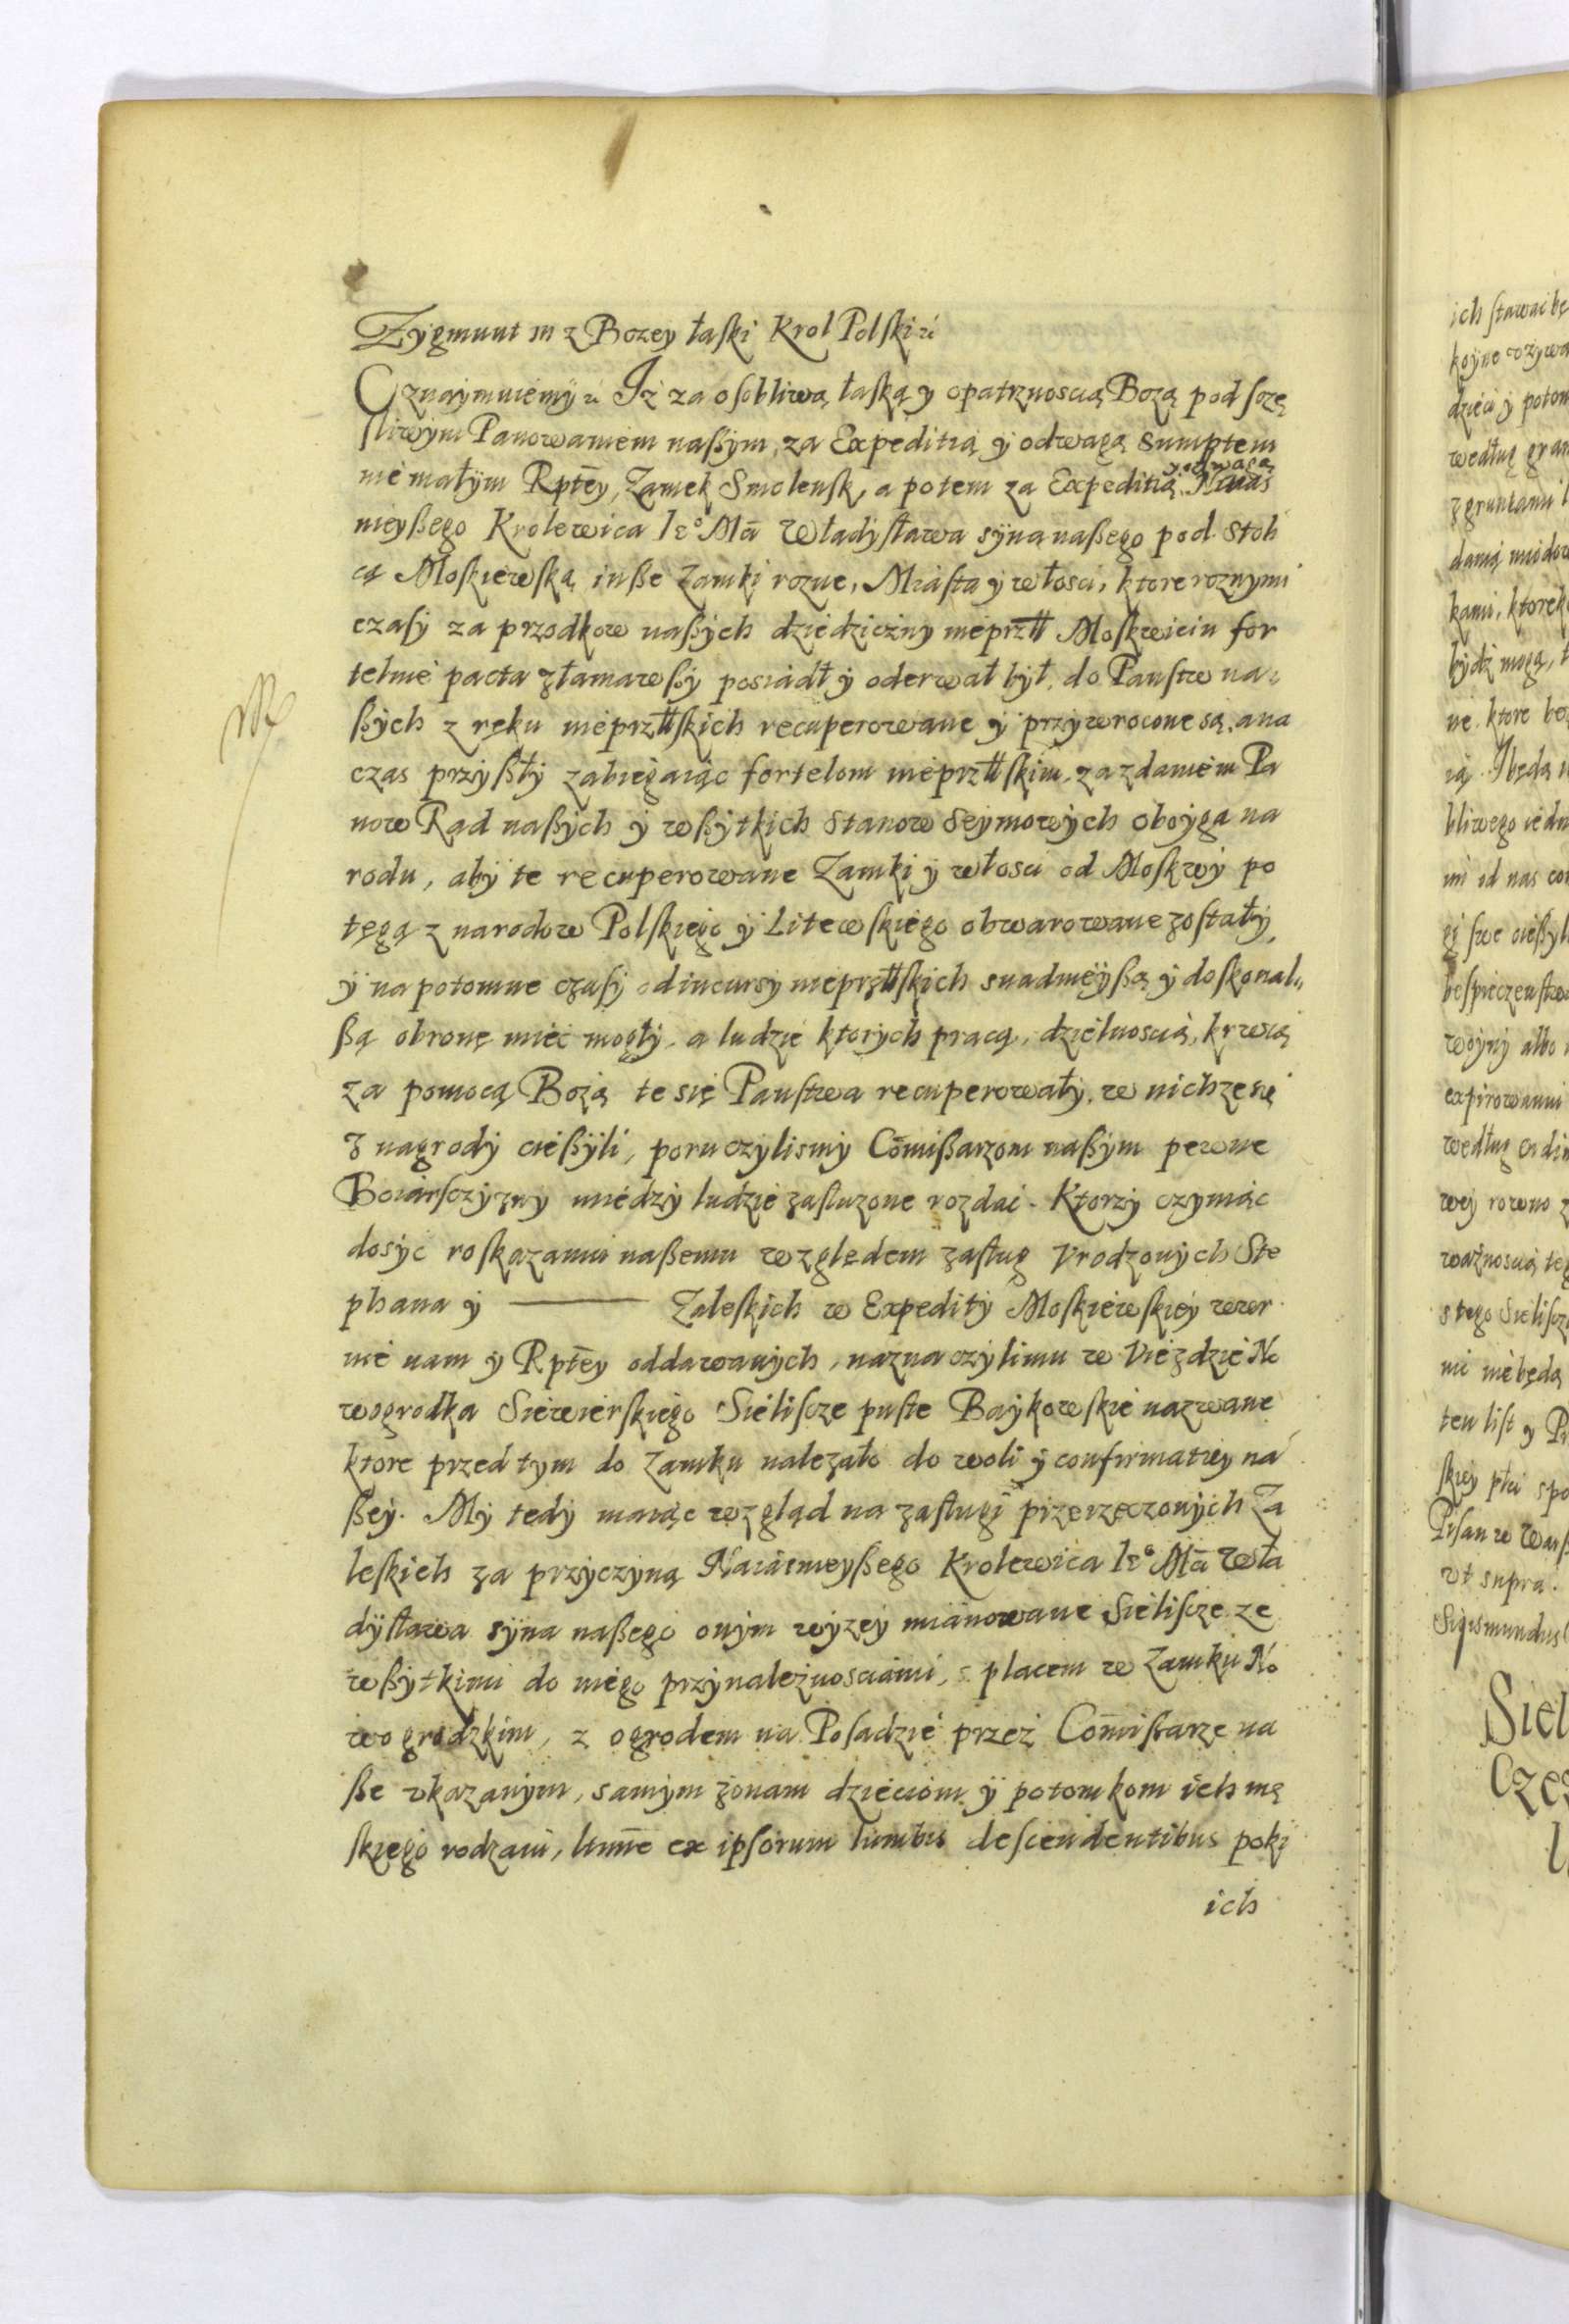 Zygmunt III z Bozey łaski Krol Polski rc
Oznaymuiemy rc Iż za osobliwą łaską y opatrznoscią Bozą pod sczę
sliwym Panowaniem naßym, za Expeditią y odwagą sumptem
niemałym Rptey, Zamek Smolensk, a potem za Expeditią y odwagą Naias
nieyßego Krolewica Ie° Mci Władysława syna naßego pod Stoli
cą Moskiewską inße Zamki rozne, Miasta y włosci, ktore roznymi
czasy za przodkow naßych dziedziczny nieprzll Moskwicin for
telnie pacta złamawßy posiadł y oderwał był, do Panstw na
ßych z ręku nieprzllskich recuperowane y przywrocone są, a na
czas przyßły zabiegaiąc fortelom nieprzllskim, za zdaniem Pa
now Rad naßych y wßytkich Stanow Seymowych oboyga na
rodu, aby te recuperowane Zamki y włosci od Moskwy po
tęgą z narodow Polskiego y Litewskiego obwarowane zostały,
y na potomne czasy od incursy nieprzllskich snadnieyßą y doskonal„
ßą obronę mieć mogły, a ludzie ktorych pracą, dzielnoscią, krwią
za pomocą Bożą te się Panstwa recuperowały, w nich ze się
z nagrody cießyli, poruczylismy Comißarzom naßym pewne
Boiarsczyzny miedzy ludzie zasluzone rozdać. Ktorzy czyniąc
dosyć roskazaniu naßemu względem zasług Vrodzonych Ste
phana y ——— Zaleskich w Expedity Moskiewskiey wier
nie nam y Rptey oddawanych, naznaczylimu w Vieździe No
wogrodka Siewierskiego Sielisсze puste Baykowskie nazwane
ktore przed tym do Zamku nalezało do woli y confirmatiey na
ßey. My tedy maiąc wzgląd na zasługi przerzeczonych Za
leskich za przyczyną Naiasnieyßego Krolewica Ie° Mci Wła
dysława syna naßego onym wyzey mianowane Sielisсze ze
wßytkimi do niego przynależnosciami, s placem w Zamku No
wogrodzkim, z ogrodem na Posadzie przez Comißarze na
ße vkazanym, samym żonam dzieciom y potomkom ich mę
skiego rodzaiu, ltime ex ipsorum lumbis descendentibus poki
ich